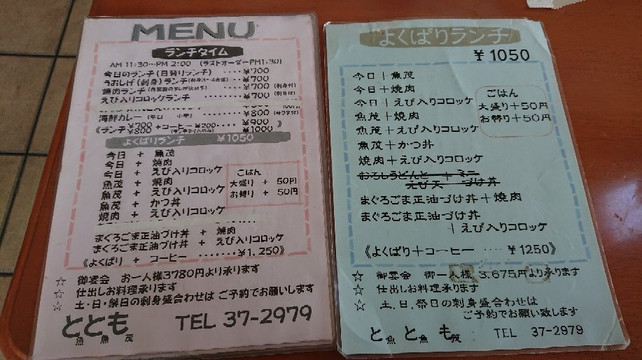 MENU
ランチタイム
AM 11:30〜PM 2:00 (ラストオーダーPM1:30)
今日のランチ(日替りランチ) ・・・・¥700
うおしげ(刺身)ランチ ・・・・¥700
焼肉ランチ ・・・・¥700
えび入りコロッケランチ ・・・・¥700
海鮮カレー
よくばりランチ ¥1050
今日 + 魚茂
今日 + 焼肉
今日 + えび入りコロッケ
魚茂 + 焼肉
魚茂 + えび入りコロッケ
魚茂 + かつ丼
焼肉 + えび入りコロッケ
ごはん
大盛り + 50円
お替り + 50円
まぐろごま正油づけ丼 + 焼肉
まぐろごま正油づけ丼 + えび入りコロッケ
《よくばり + コーヒー ・・・・・¥1,250》
☆ 御宴会 お一人様3780円より承ります
☆ 仕出しお料理承ります
☆ 土・日・祭日の刺身盛合わせは ご予約でお願いします
ととも
魚 魚 茂
TEL 37-2979
よくばりランチ
¥1050
今日+魚茂
今日+焼肉
今日+えび入りコロッケ
魚茂+焼肉
魚茂+えび入りコロッケ
魚茂+かつ丼
焼肉+えび入りコロッケ
ごはん
大盛り+50円
お替り+50円
まぐろごま正油づけ丼+焼肉
まぐろごま正油づけ丼
+えび入りコロッケ
《よくばり+コーヒー ・・・・ ¥1250》
☆ 御宴会 御一人様 3,675円より承ります
☆ 仕出しお料理承ります
☆ 土、日、祭日の刺身盛合わせは
ご予約でお願い致します
と魚と魚も茂 : TEL 37-2979